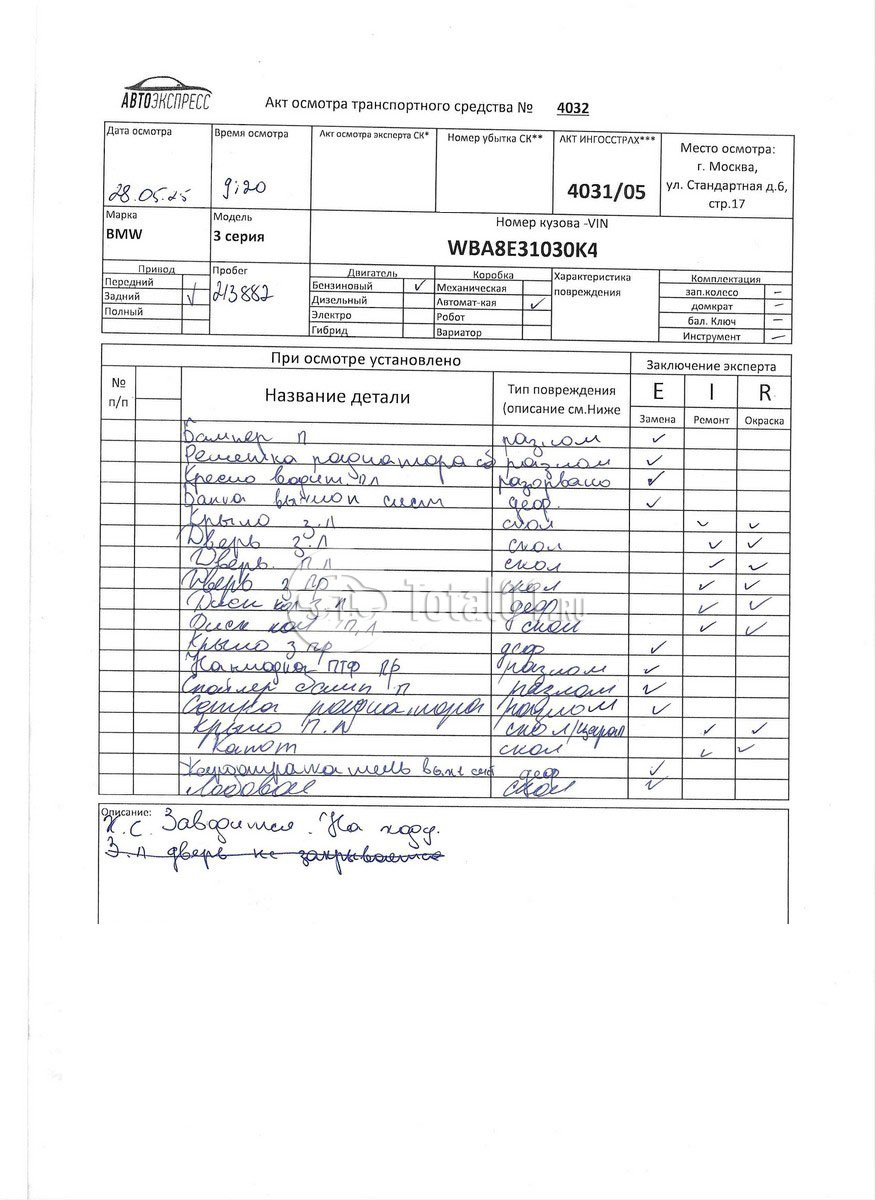 АВТОЭКСПРЕСС
Акт осмотра транспортного средства № 4032
Дата осмотра Время осмотра Акт осмотра эксперта СК* Номер убытка СК** АКТ ИНГОССТРАХ*** Место осмотра:
г. Москва,
28.05.25 9:20 4031/05 ул. Стандартная д.6,
стр.17
Марка Модель Номер кузова -VIN
BMW 3 серия WBA8E31030K4
Привод Пробег Двигатель Коробка Характеристика повреждения Комплектация
Передний 213882 Бензиновый ✓ Механическая зап.колесо –
Задний ✓ Дизельный Автомат-кая ✓ домкрат –
Полный Электро Робот бал. Ключ –
Гибрид Вариатор Инструмент –
При осмотре установлено Заключение эксперта
№ п/п Название детали Тип повреждения (описание см.Ниже E I R
Замена Ремонт Окраска
Бампер П разлом ✓
Решетка радиатора разлом ✓
Кресло водит. разорвано ✓
Банка выхлоп сист деф. ✓
Крыло З.Л скол ✓ ✓
Дверь З.Л скол ✓ ✓
Дверь П Л скол ✓ ✓
Дверь З Пр скол ✓ ✓
Диск кол З.П деф ✓ ✓
Диск кол П.Л скол ✓ ✓
Крыло З Пр деф ✓
Накладка ПТФ ПР разлом ✓
Спойлер бамп П разлом ✓
радиатора разлом ✓
Крыло П.П скол/царап ✓ ✓
Капот скол ✓ ✓
деф ✓
Лобовое скол ✓
Total01.RU
Описание:
Заводится. На ходу.
З.Л дверь не закрывается